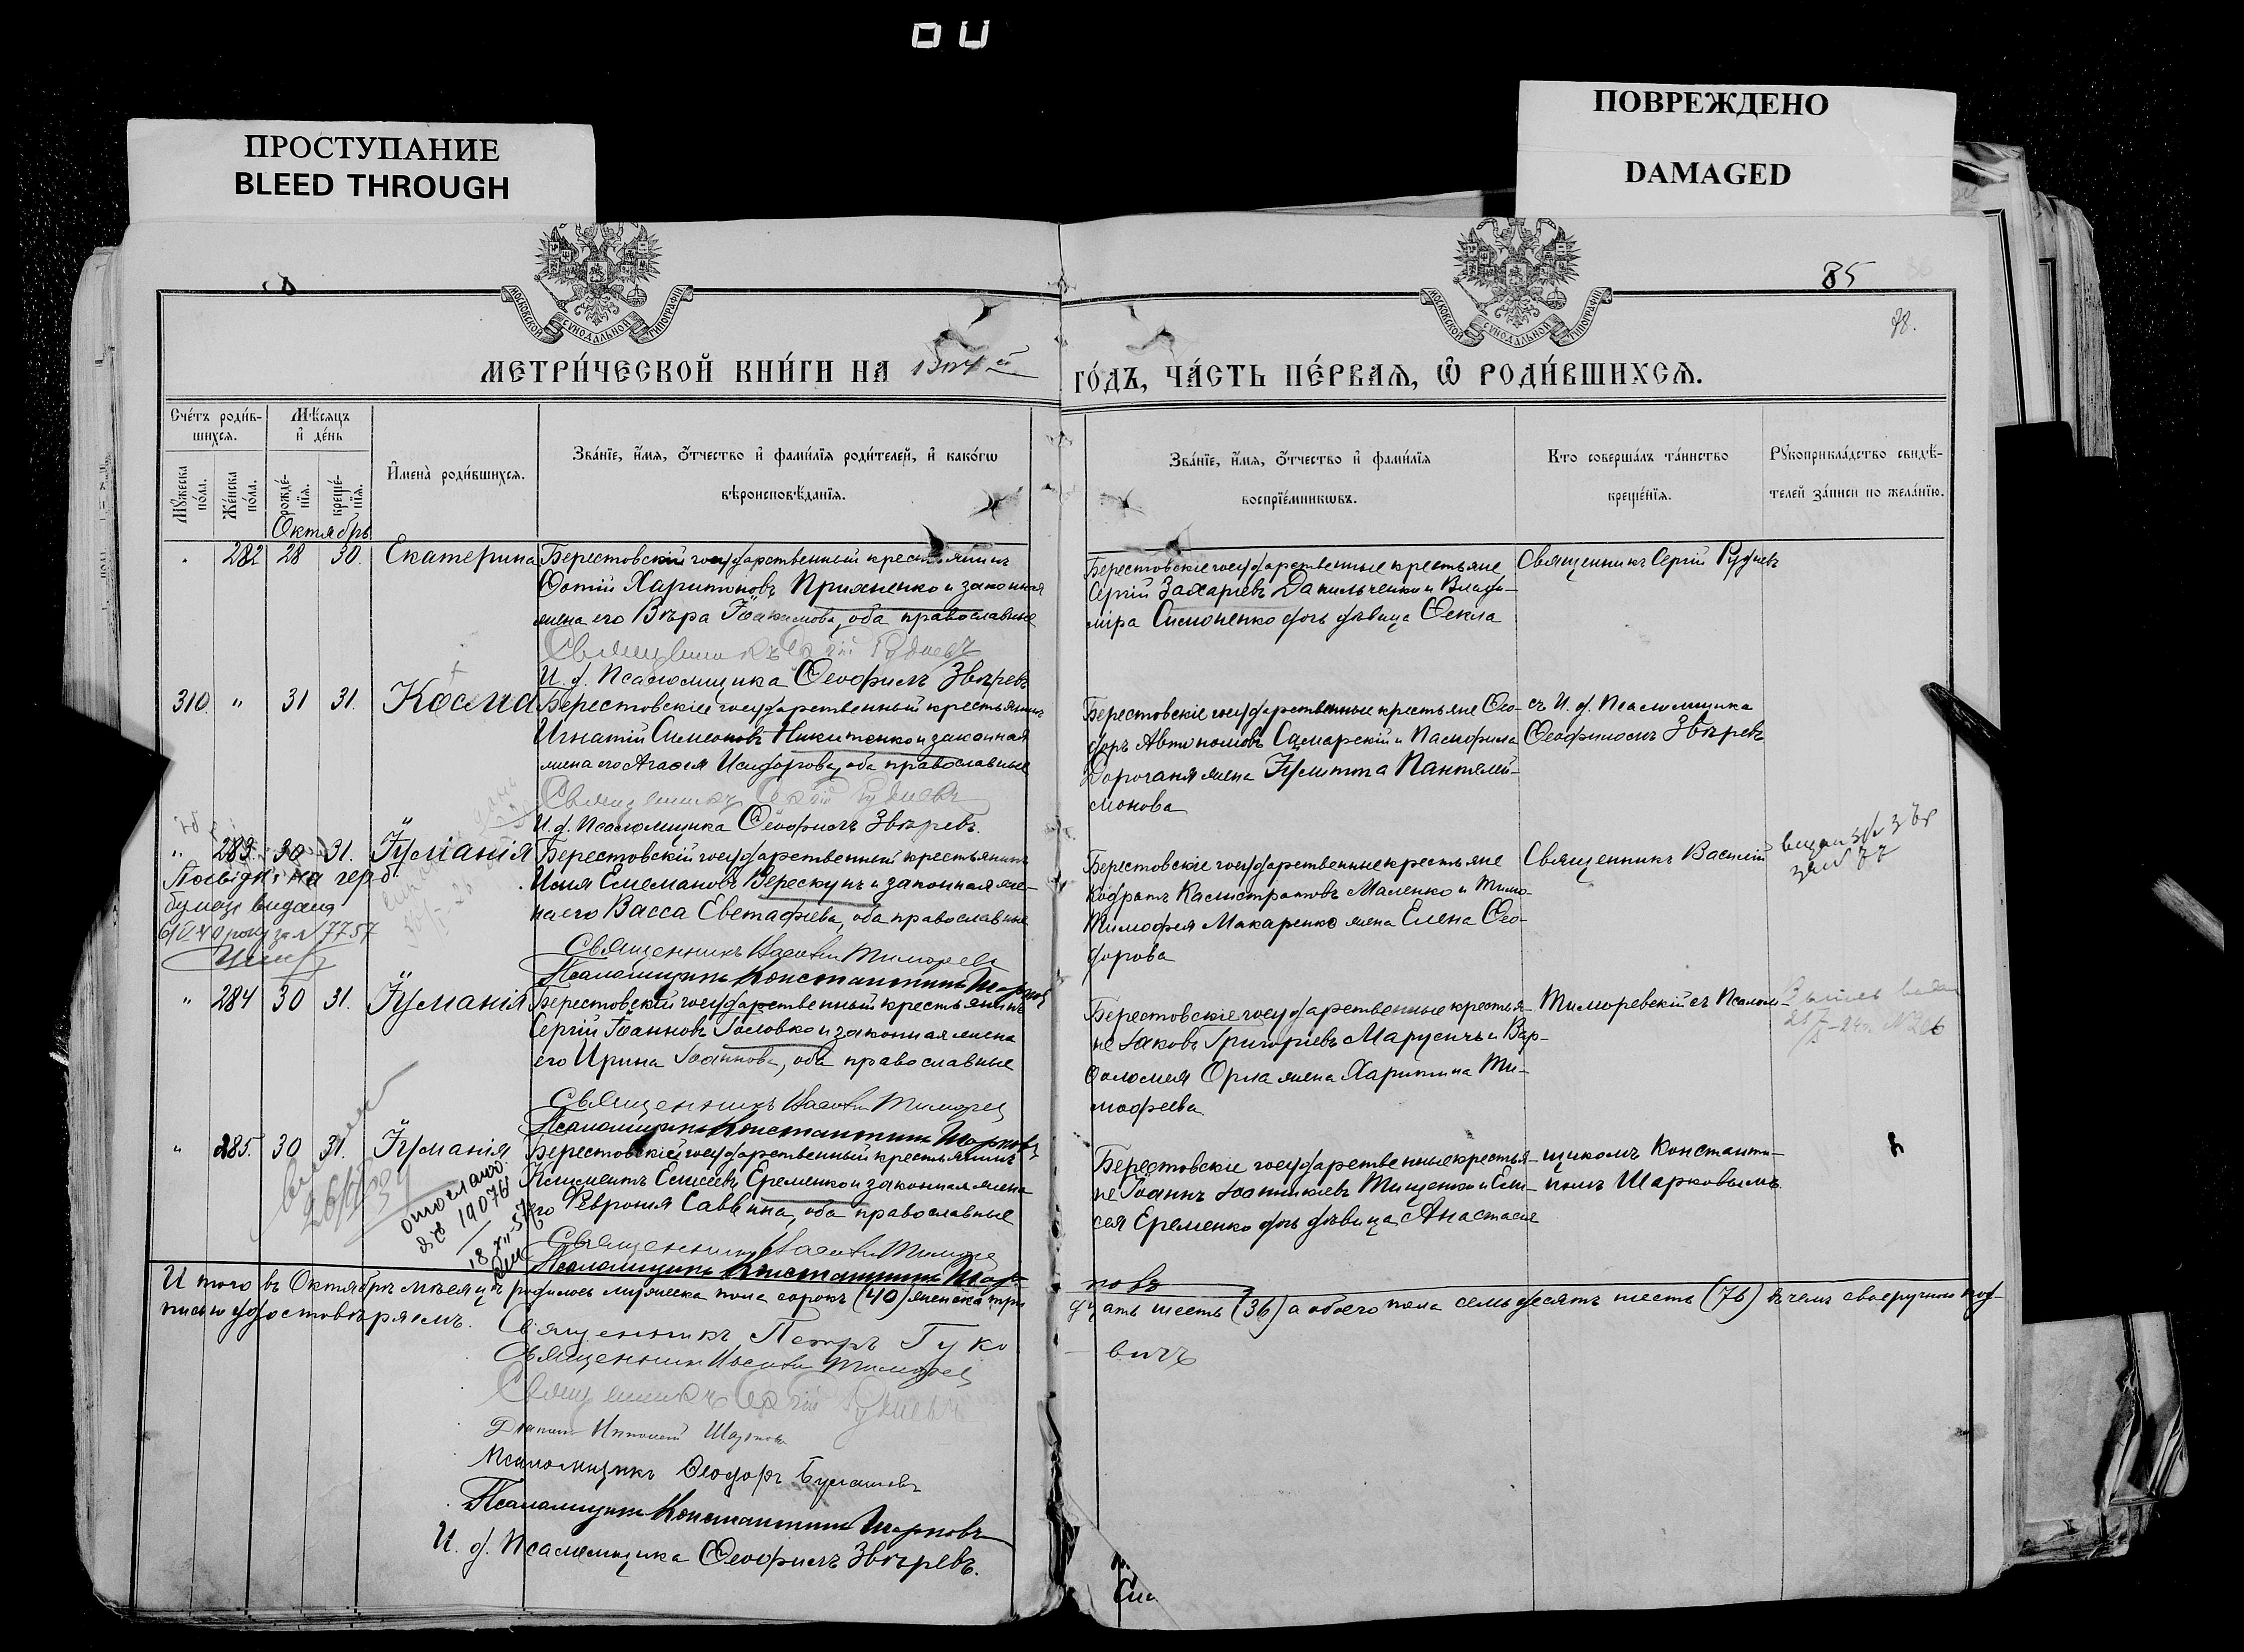 ПРОСТУПАНИЕ
BLEED THROUGH
ПОВРЕЖДЕНО
DAMAGED
МОСКОВСКОЙ СѴНОДАЛЬНОЙ ТИПОГРАФІИ
МОСКОВСКОЙ СѴНОДАЛЬНОЙ ТИПОГРАФІИ
85
78.
МЕТРИ́ЧЕСКОЙ КНИ́ГИ НА
ГО́ДЪ, ЧА́СТЬ ПЕ́РВАѦ, Ѡ҆ РОДИ́ВШИХСѦ.
Сче́тъ роди́в-
шихсѧ.
Мѣ́сѧцъ
и҆ де́нь
Мꙋ́жеска по́ла.
Же́нска по́ла.
рожде́-нїѧ.
креще́-нїѧ.
И҆мена̀ роди́вшихсѧ.
Зва́нїе, и҆́мѧ, ѻ҆́тчество и҆ фами́лїѧ роди́телей, и҆ како́гѡ
вѣроисповѣ́данїѧ.
Зва́нїе, и҆́мѧ, ѻ҆́тчество и҆ фами́лїѧ
воспрїе́мникѡвъ.
Кто соверша́лъ та́инство
креще́нїѧ.
Рꙋкоприкла́дство свидѣ́-
телей за́писи по жела́нїю.
Октябрь
282 28 30. Екатерина
Берестовскій государственный крестьянинъ
Фотій Харитоновъ Прихненко и законная
жена его Вѣра Іоакимова, оба православные
Священникъ Сергій Рудневъ
И. д. Псаломщика Ѳеофилъ Звѣревъ
Берестовскіе государственные крестьяне
Сергій Захаріевъ Данильченко и Влади-
міра Симоненко дочь дѣвица Ѳекла
Священникъ Сергій Рудневъ
310. " 31 31. Косма
Берестовскій государственный крестьянинъ
Игнатій Симеоновъ Никитенко и законная
жена его Агаѳія Исидорова, оба православные
Священникъ Сергій Рудневъ
И. д. Псаломщика Ѳеофилъ Звѣревъ.
Берестовскіе государственные крестьяне Ѳео-
доръ Автономовъ Самарскій и Памфила
Дорогана жена Іулитта Пантелей-
монова
съ И. д. Псаломщика
Ѳеофиломъ Звѣревъ
" 283. 30 31. Іуліанія
Берестовскій государственный крестьянинъ
Илія Емельяновъ Верескунъ и законная же-
на его Васса Евстафіева, оба православные
Священникъ Василій
Псаломщикъ Константинъ Шарковъ
Берестовскіе государственные крестьяне
Кодратъ Калистратовъ Маленко и Тимо-
Тимофея Макаренко жена Елена Ѳео-
дорова
Священникъ Василій
" 284 30 31. Іуліанія
Берестовскій государственный крестьянинъ
Сергій Іоанновъ Головко и законная жена
его Ирина Іоаннова, оба православные
Священникъ Василій
Псаломщикъ Константинъ Шарковъ
Берестовскіе государственные крестья-
не Іаковъ Григоріевъ Марусичъ и Вар-
ѳоломея Орла жена Харитина Ти-
моѳеева
Тиморевскій съ Псалом-
" 285. 30 31. Іуліанія
Берестовскій государственный крестьянинъ
Климентъ Елисеевъ Еременко и законная жена
его Февронія Саввина, оба православные
Священникъ Василій
Псаломщикъ Константинъ Шар-
ковъ
Берестовскіе государственные крестья-
не Іоаннъ Іоанникіевъ Тищенко и Ели-
сея Еременко дочь дѣвица Анастасія
щикомъ Константи-
номъ Шарковымъ
Итого въ Октябрѣ мѣсяцѣ родилось мужеска пола сорокъ (40) женска три
дцать шесть (36) а обоего пола семьдесятъ шесть (76) въ чемъ своеручною под-
писью удостовѣряемъ.
Священникъ Петръ Гуко
вичъ
Священникъ Василій
Священникъ Сергій Рудневъ
Псаломщикъ Ѳеодоръ
Псаломщикъ Константинъ Шарковъ
И. д. Псаломщика Ѳеофилъ Звѣревъ.